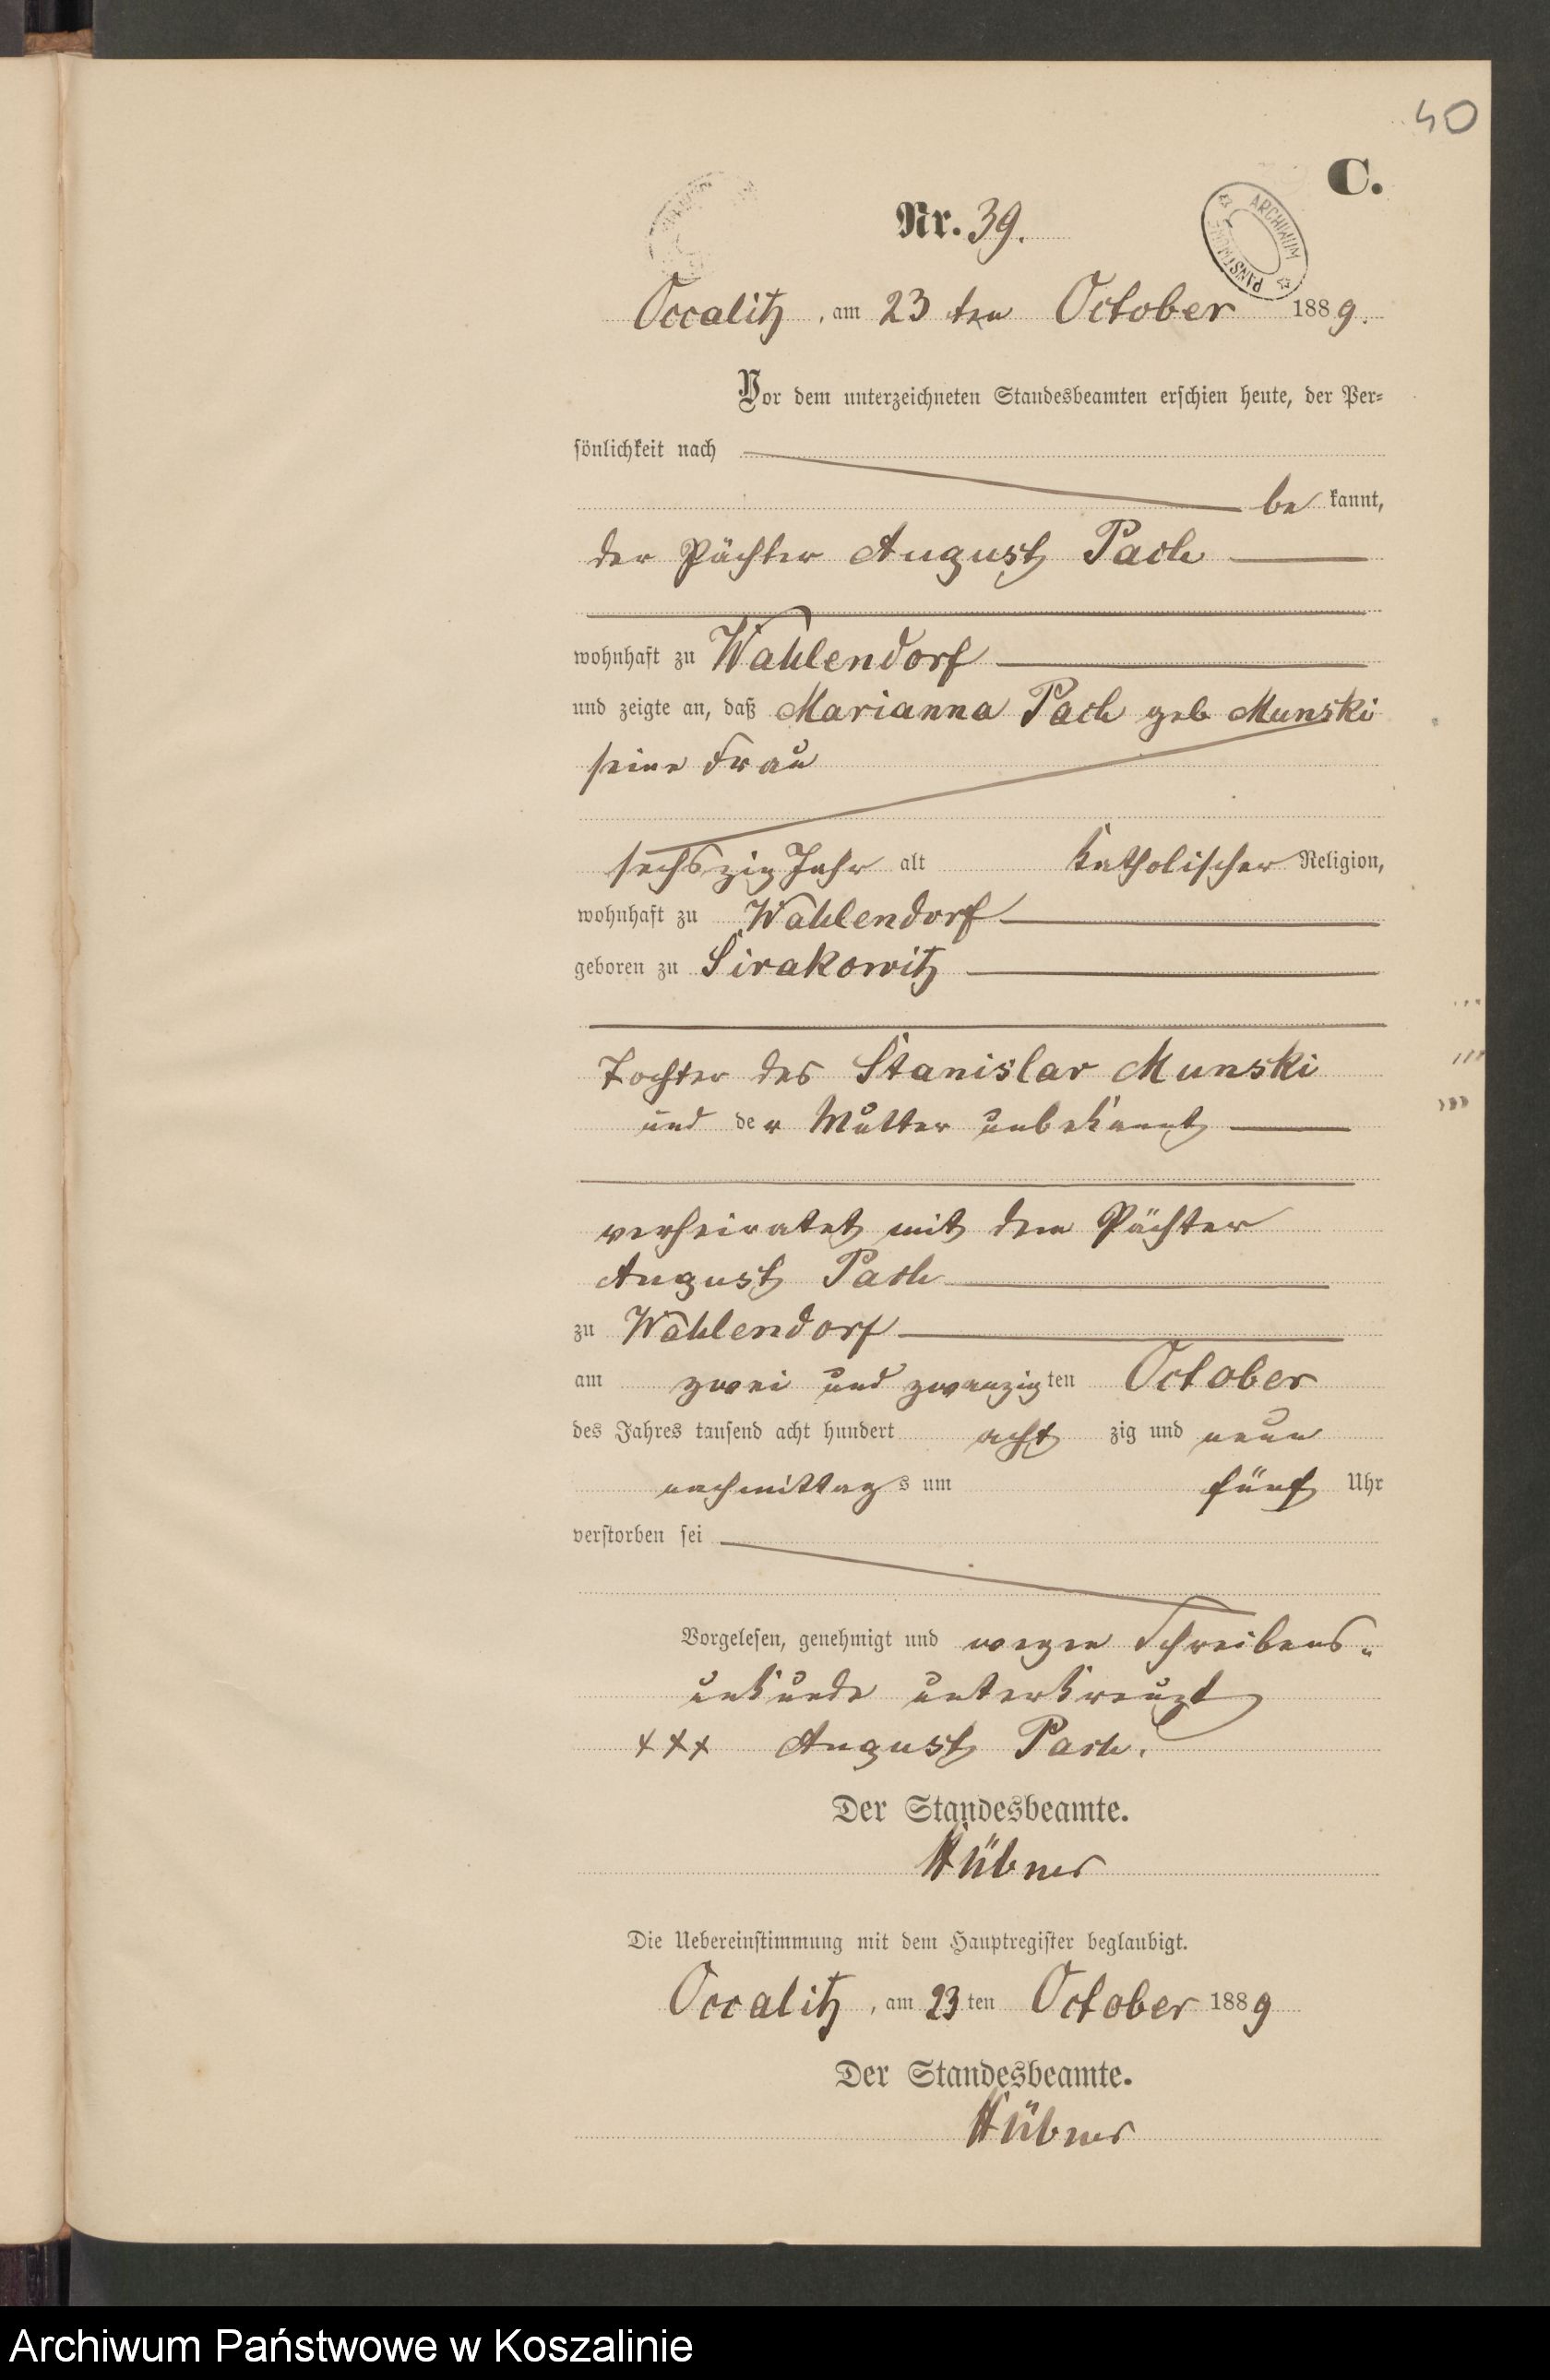 40
C.
Nr. 39.
ARCHIWUM PAŃSTWOWE
Occalitz, am 23 ten October 1889.
Vor dem unterzeichneten Standesbeamten erschien heute, der Per-
sönlichkeit nach
be kannt,
der Pächter August Pach
wohnhaft zu Wahlendorf
und zeigte an, daß Marianna Pach geb Munski
seine Frau
sechszig Jahr alt katholischer Religion,
wohnhaft zu Wahlendorf
geboren zu Sirakowitz
Tochter des Stanislav Munski
und der Mutter unbekannt
verheiratet mit dem Pächter
August Pach
zu Wahlendorf
am zwei und zwanzigten October
des Jahres tausend acht hundert acht zig und neun
nachmittags um fünf Uhr
verstorben sei
Vorgelesen, genehmigt und wegen Schreibens-
unkunde unterkreuzt
+++ August Pach.
Der Standesbeamte.
Hübner
Die Uebereinstimmung mit dem Hauptregister beglaubigt.
Occalitz, am 23 ten October 1889
Der Standesbeamte.
Hübner
Archiwum Państwowe w Koszalinie